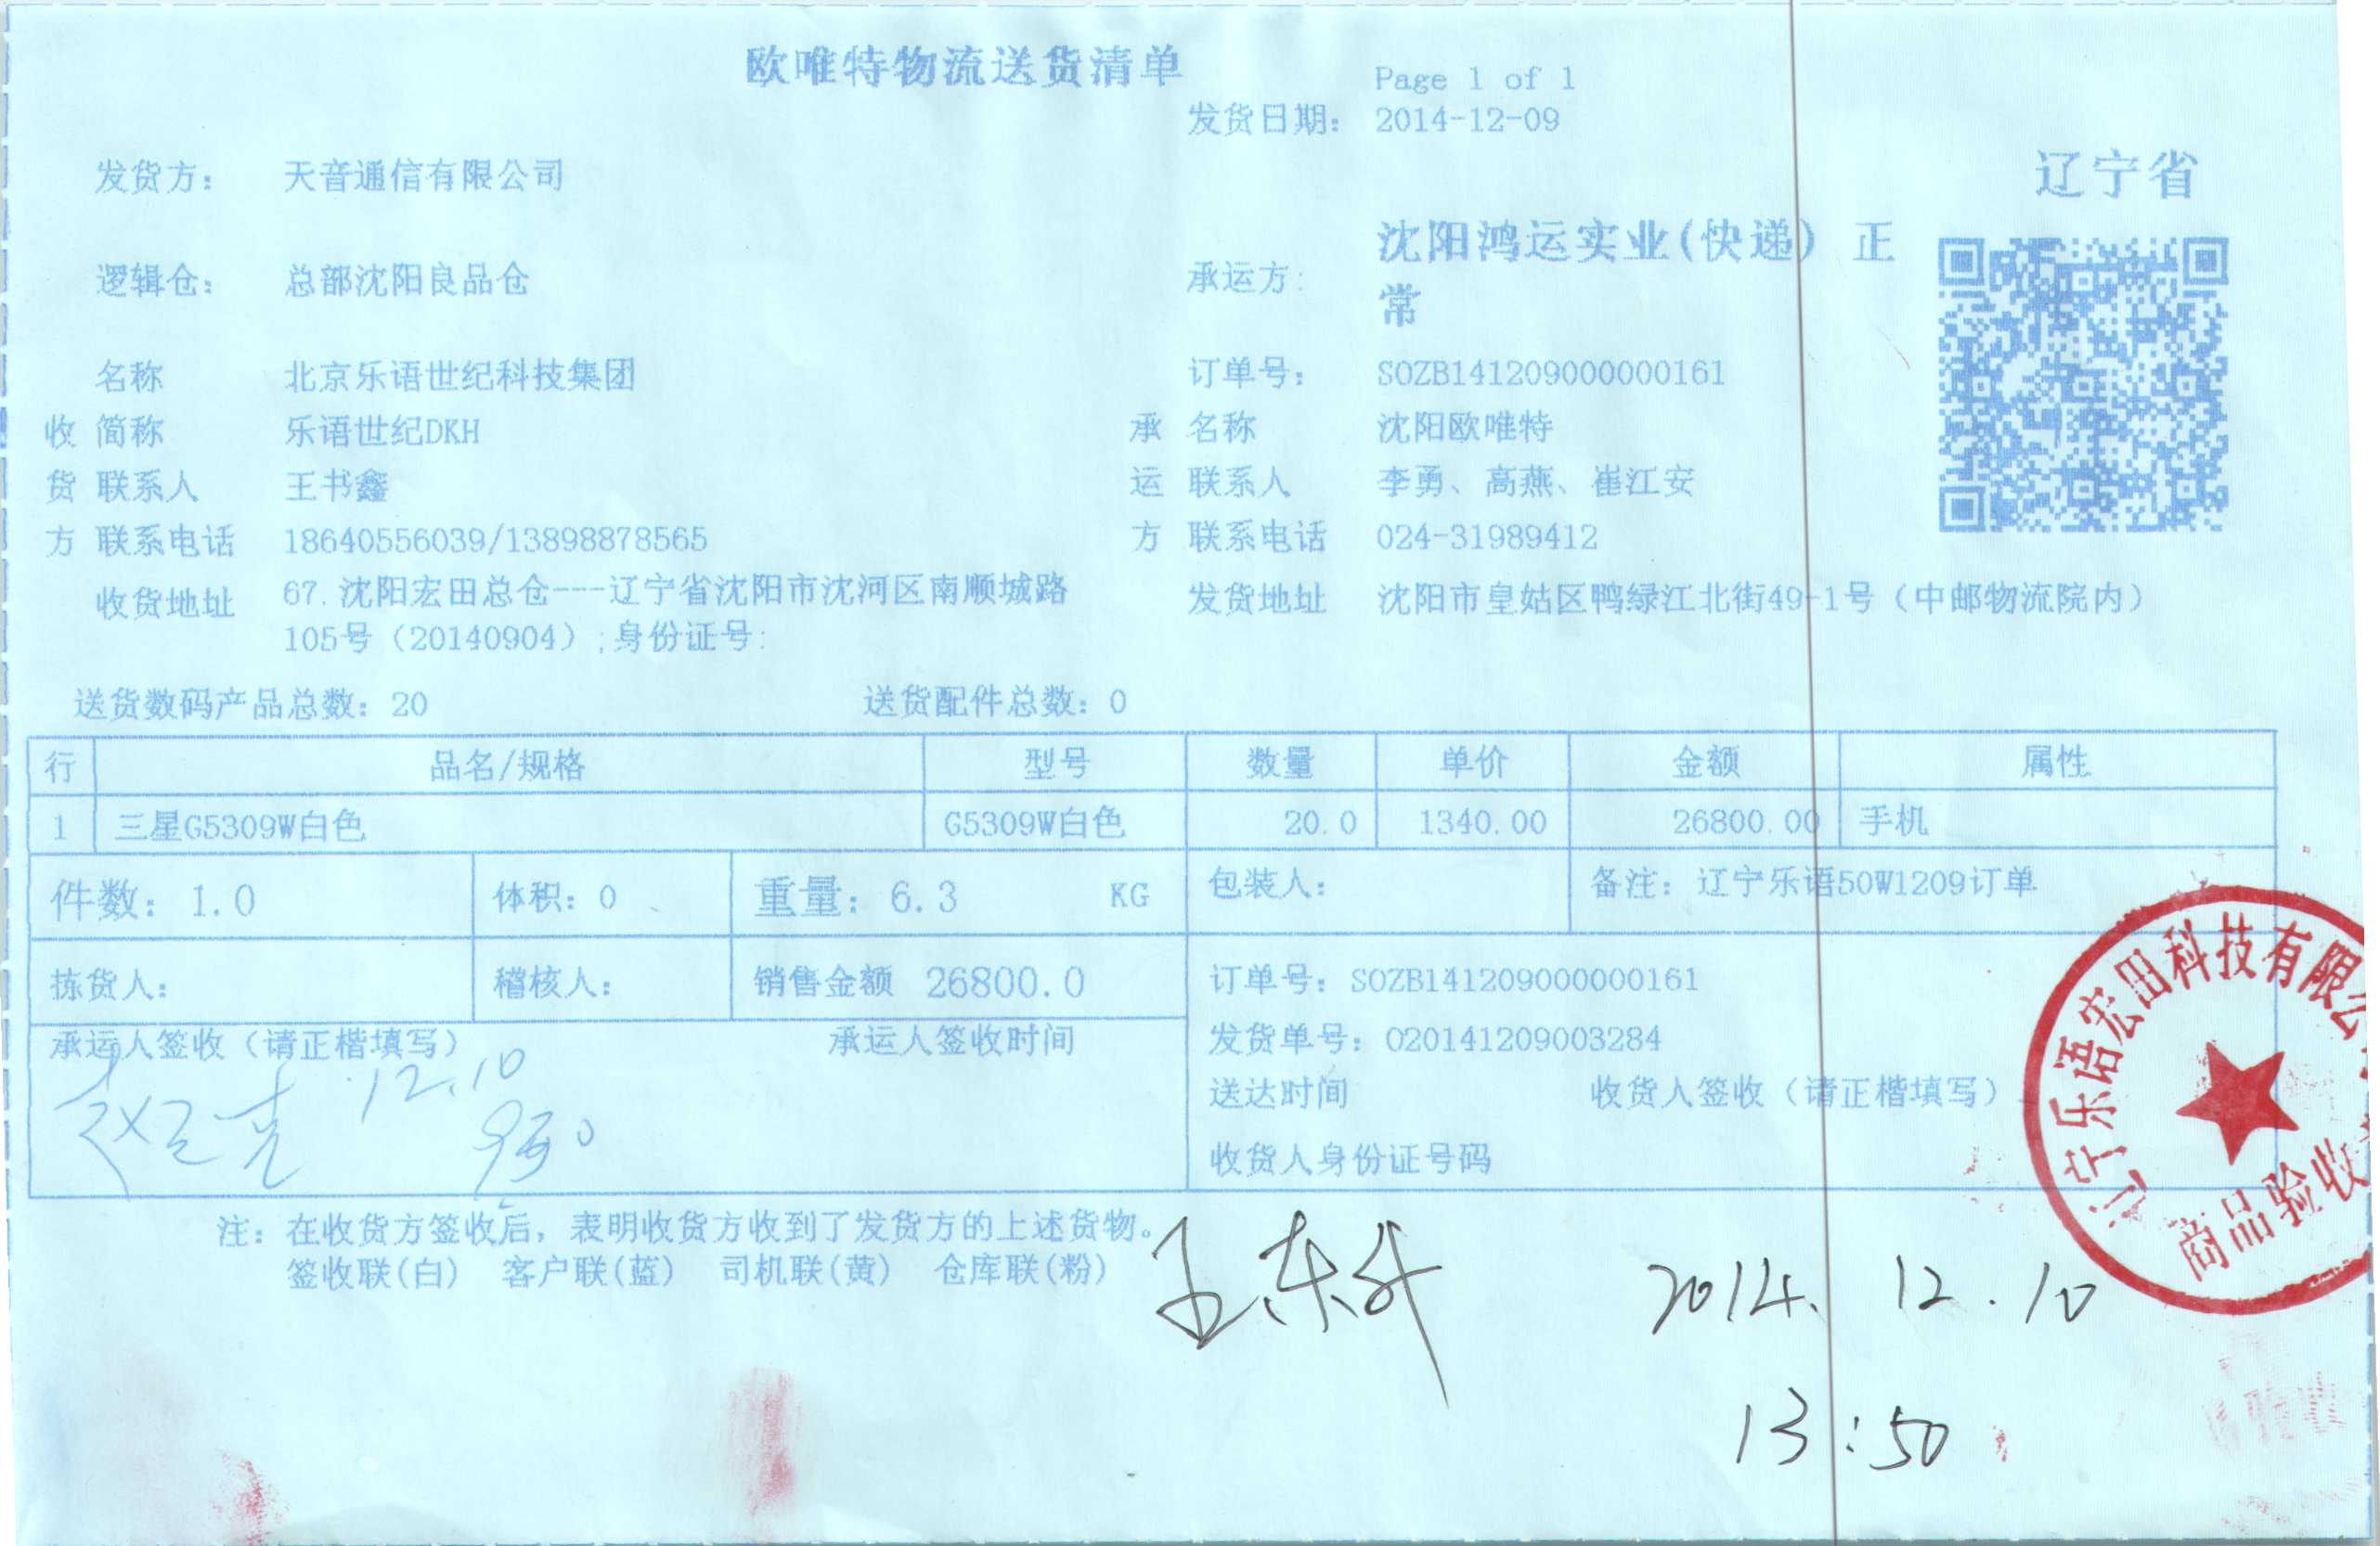 欧唯特物流送货清单
Page 1 of 1
发货日期: 2014-12-09
发货方: 天音通信有限公司
辽宁省
逻辑仓: 总部沈阳良品仓
承运方: 沈阳鸿运实业(快递) 正
常
名称 北京乐语世纪科技集团
订单号: SOZB141209000000161
收 简称 乐语世纪DKH
承 名称 沈阳欧唯特
货 联系人 王书鑫
运 联系人 李勇、高燕、崔江安
方 联系电话 18640556039/13898878565
方 联系电话 024-31989412
收货地址 67.沈阳宏田总仓---辽宁省沈阳市沈河区南顺城路
105号（20140904）;身份证号:
发货地址 沈阳市皇姑区鸭绿江北街49-1号（中邮物流院内）
送货数码产品总数: 20 送货配件总数: 0
行 品名/规格 型号 数量 单价 金额 属性
1 三星G5309W白色 G5309W白色 20.0 1340.00 26800.00 手机
件数: 1.0 体积: 0 重量: 6.3 KG 包装人: 备注: 辽宁乐语50W1209订单
拣货人: 稽核人: 销售金额 26800.0 订单号: SOZB141209000000161
承运人签收（请正楷填写） 承运人签收时间
发货单号: O20141209003284
12.10
930
送达时间 收货人签收（请正楷填写）
收货人身份证号码
辽宁乐语宏田科技有限公
商品验收
注: 在收货方签收后，表明收货方收到了发货方的上述货物。
签收联(白) 客户联(蓝) 司机联(黄) 仓库联(粉)
2014. 12. 10
13:50